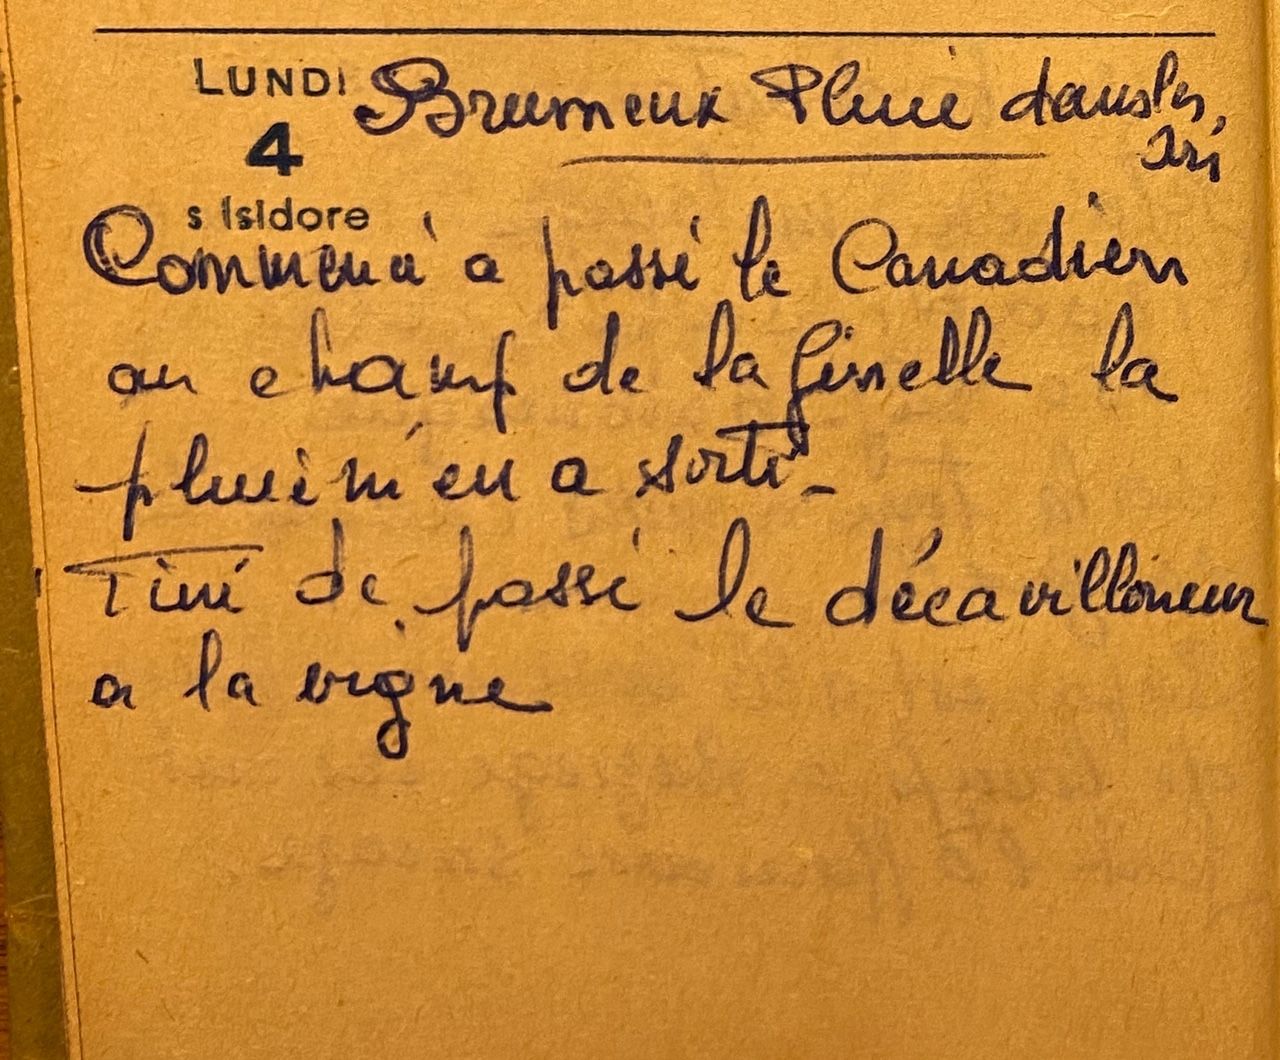 LUNDI Brumeux Pluie dans les
4
s Isidore
Commencé a passé le Canadien
au champ de la la
pluie m'en a sorti -
Fini de passé le décavillonneur
a la vigne